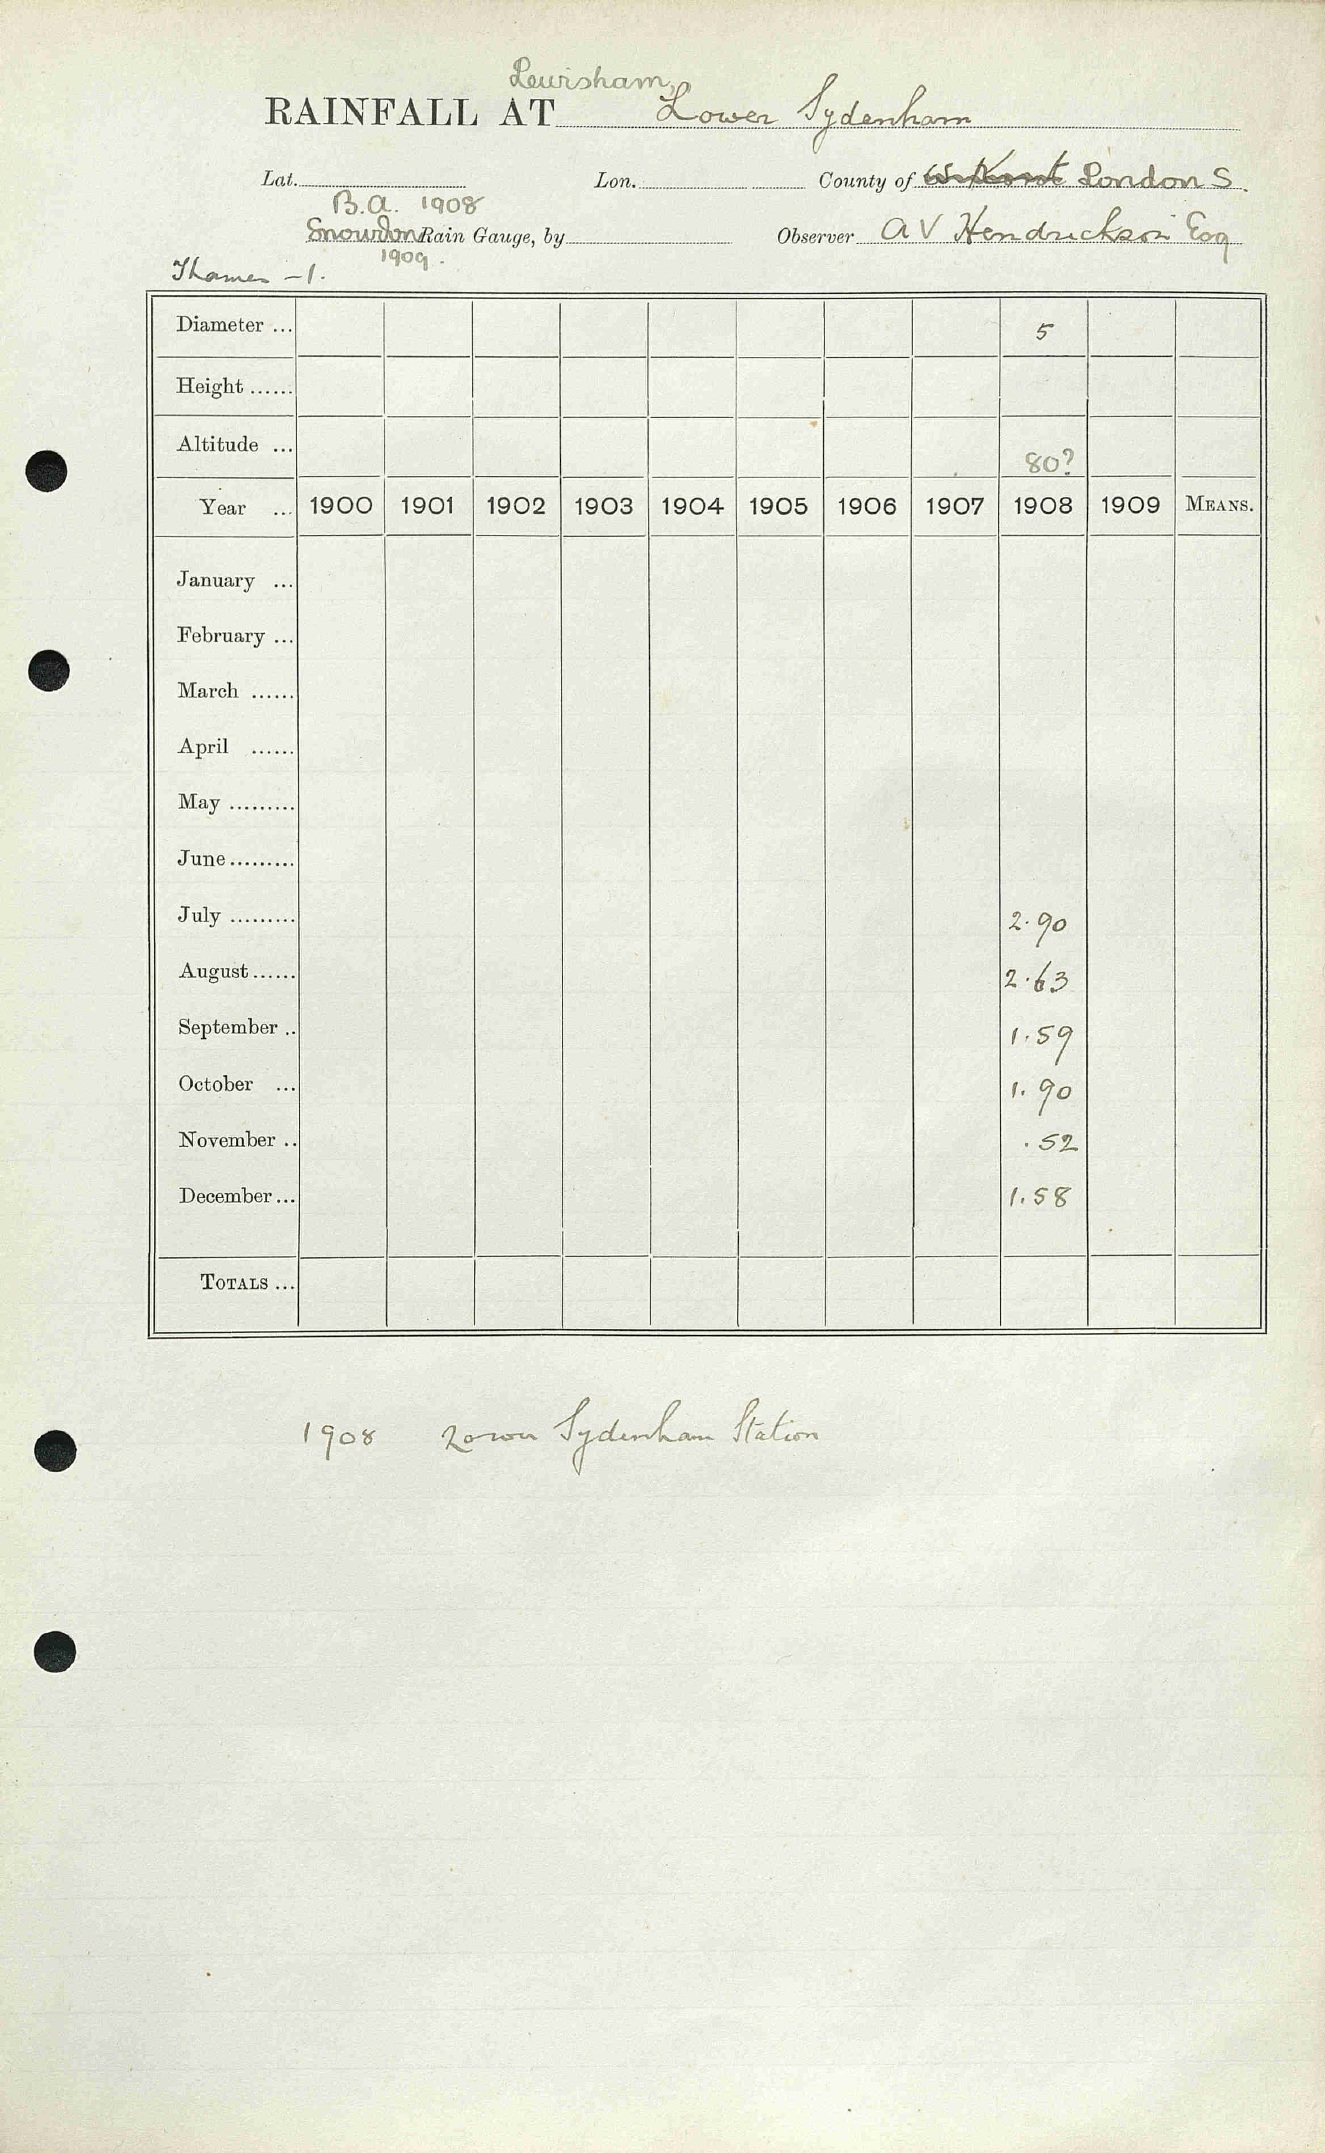 Lewisham,
RAINFALL AT Lower Sydenham
Lat. Lon. County of W. Kent London S.
B.A. 1908
Snowdon Rain Gauge, by Observer A V Hendrickson Esq
1909.
Thames - 1.
Diameter ... 5
Height ......
Altitude ... 80?
Year ... 1900 1901 1902 1903 1904 1905 1906 1907 1908 1909 MEANS.
January ...
February ...
March ......
April ......
May .........
June .........
July ......... 2.90
August ...... 2.63
September .. 1.59
October ... 1.90
November .. .52
December ... 1.58
TOTALS ...
1908 Lower Sydenham Station